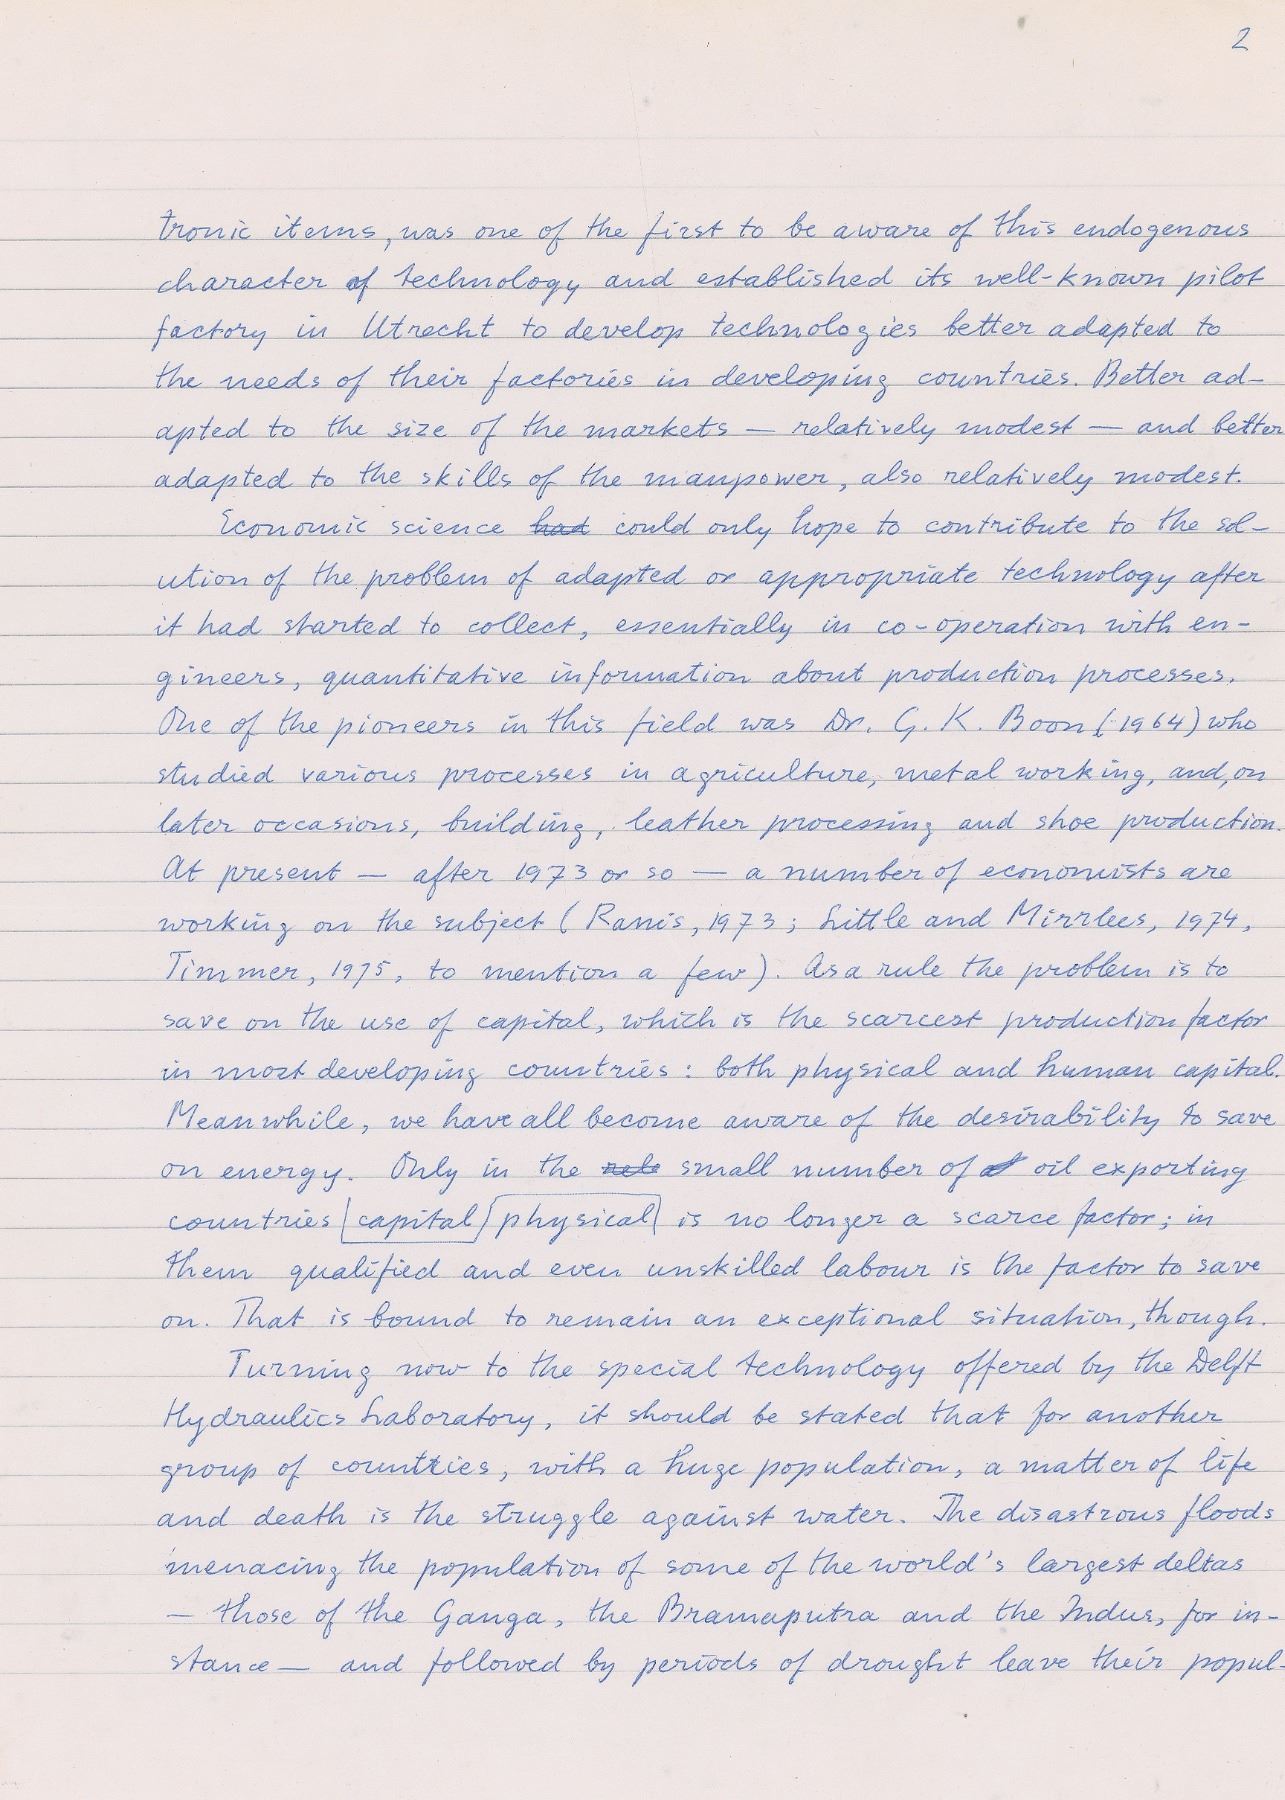 2
tronic items, was one of the first to be aware of this endogenous
character of technology and established its well-known pilot
factory in Utrecht to develop technologies better adapted to
the needs of their factories in developing countries. Better ad-
apted to the size of the markets — relatively modest — and better
adapted to the skills of the manpower, also relatively modest.
Economic science had could only hope to contribute to the sol-
ution of the problem of adapted or appropriate technology after
it had started to collect, essentially in co-operation with en-
gineers, quantitative information about production processes.
One of the pioneers in this field was Dr. G. K. Boon (1964) who
studied various processes in agriculture, metal working, and, on
later occasions, building, leather processing and shoe production.
At present — after 1973 or so — a number of economists are
working on the subject (Ranis, 1973; Little and Mirrlees, 1974,
Timmer, 1975, to mention a few). As a rule the problem is to
save on the use of capital, which is the scarcest production factor
in most developing countries: both physical and human capital.
Meanwhile, we have all become aware of the desirability to save
on energy. Only in the small number of oil exporting
countries capital physical is no longer a scarce factor; in
them qualified and even unskilled labour is the factor to save
on. That is bound to remain an exceptional situation, though.
Turning now to the special technology offered by the Delft
Hydraulics Laboratory, it should be stated that for another
group of countries, with a huge population, a matter of life
and death is the struggle against water. The disastrous floods
menacing the population of some of the world's largest deltas
— those of the Ganga, the Bramaputra and the Indus, for in-
stance — and followed by periods of drought leave their popul-